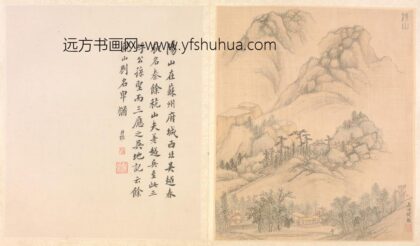 远方书画网-www.yfshuhua.com
陽山在蘇州府城西北吳越春
秋名秦餘杭山夫差越兵至此三
呼公孫聖而三應之吳地記云餘
山別名卑猶
陽山